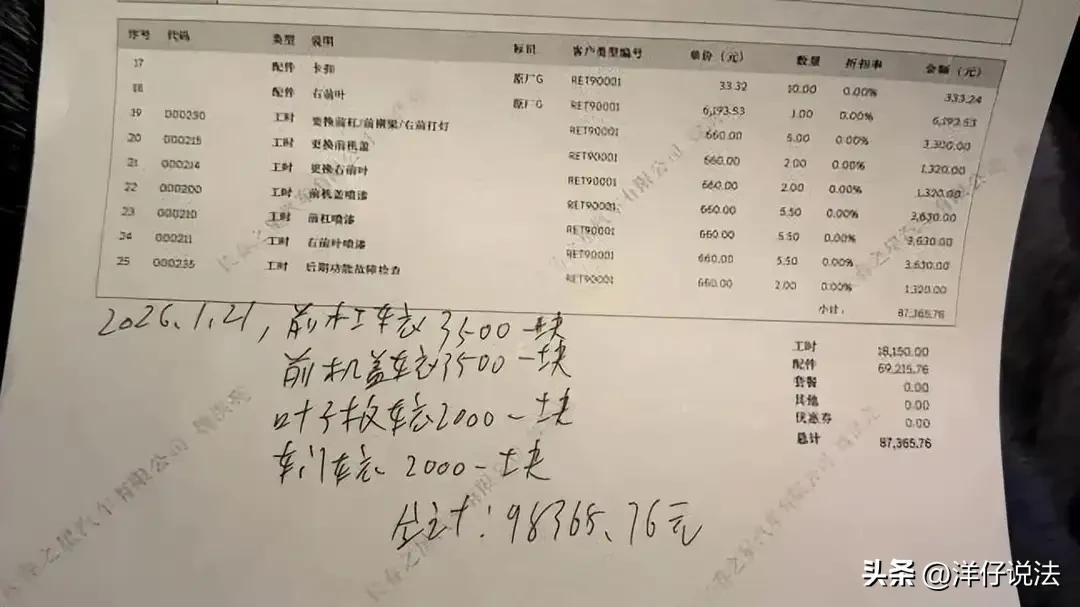 序号 代码 类型 说明 标识 客户类型编号 单价（元） 数量 折扣率 金额（元）
17 配件 卡扣 原厂G RET90001 33.32 10.00 0.00% 333.24
18 配件 右前叶 原厂G RET90001 6,193.53 1.00 0.00% 6,193.53
19 000230 工时 更换前杠/前钢梁/右前灯 RET90001 660.00 5.00 0.00% 3,300.00
20 000215 工时 更换前机盖 RET90001 660.00 2.00 0.00% 1,320.00
21 000214 工时 更换右前叶 RET90001 660.00 2.00 0.00% 1,320.00
22 000200 工时 前机盖喷漆 RET90001 660.00 5.50 0.00% 3,630.00
23 000210 工时 前杠喷漆 RET90001 660.00 5.50 0.00% 3,630.00
24 000211 工时 右前叶喷漆 RET90001 660.00 5.50 0.00% 3,630.00
25 000235 工时 后期功能故障检查 RET90001 660.00 2.00 0.00% 1,320.00
小计： 87,365.76
工时 18,150.00
配件 69,215.76
套餐 0.00
其他 0.00
优惠券 0.00
总计 87,365.76
2026.1.21，前杠车衣3500一块
前机盖车衣3500一块
叶子板车衣2000一块
车门车衣2000一块
全主计：98365.76元
头条 @洋仔说法